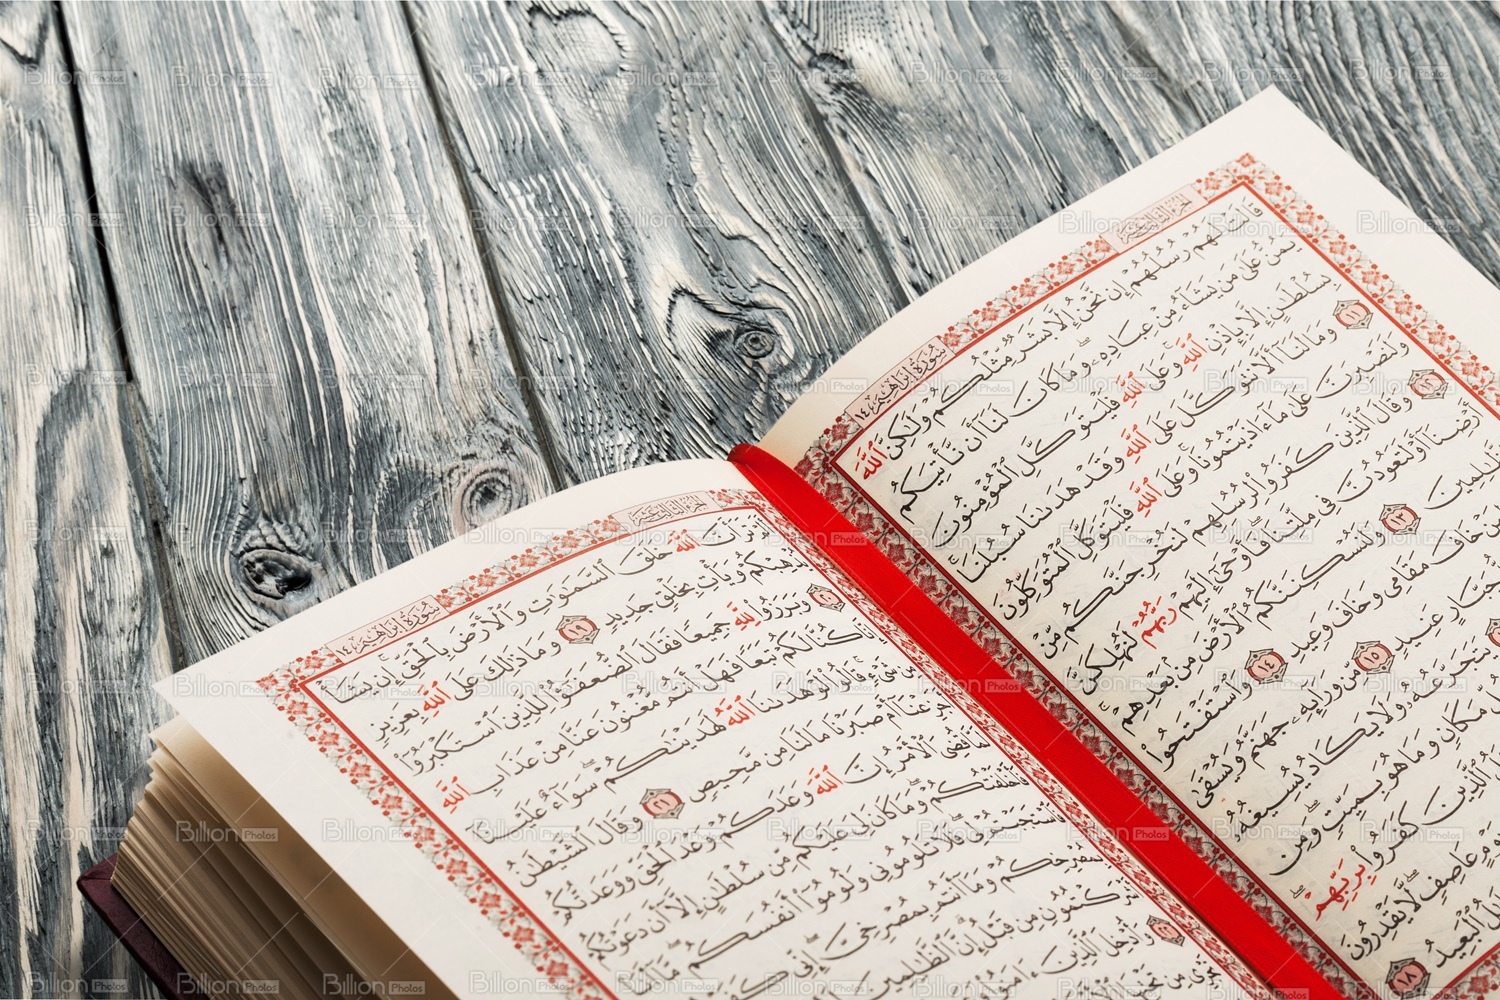 الجزء الثالث عشر
سُورَةُ إِبْرَاهِيمَ ١٤
قَالَتْ لَهُمْ رُسُلُهُمْ إِن نَّحْنُ إِلَّا بَشَرٌ مِّثْلُكُمْ وَلَٰكِنَّ ٱللَّهَ
يَمُنُّ عَلَىٰ مَن يَشَآءُ مِنْ عِبَادِهِۦ وَمَا كَانَ لَنَآ أَن نَّأْتِيَكُم
بِسُلْطَٰنٍ إِلَّا بِإِذْنِ ٱللَّهِ وَعَلَى ٱللَّهِ فَلْيَتَوَكَّلِ ٱلْمُؤْمِنُونَ
١١ وَمَا لَنَآ أَلَّا نَتَوَكَّلَ عَلَى ٱللَّهِ وَقَدْ هَدَىٰنَا سُبُلَنَا
وَلَنَصْبِرَنَّ عَلَىٰ مَآ ءَاذَيْتُمُونَا وَعَلَى ٱللَّهِ فَلْيَتَوَكَّلِ ٱلْمُتَوَكِّلُونَ
١٢ وَقَالَ ٱلَّذِينَ كَفَرُوا۟ لِرُسُلِهِمْ لَنُخْرِجَنَّكُم مِّنْ
أَرْضِنَآ أَوْ لَتَعُودُنَّ فِى مِلَّتِنَا فَأَوْحَىٰٓ إِلَيْهِمْ رَبُّهُمْ لَنُهْلِكَنَّ
ٱلظَّٰلِمِينَ ١٣ وَلَنُسْكِنَنَّكُمُ ٱلْأَرْضَ مِنۢ بَعْدِهِمْ
لِمَنْ خَافَ مَقَامِى وَخَافَ وَعِيدِ ١٤ وَٱسْتَفْتَحُوا۟
جَبَّارٍ عَنِيدٍ ١٥ مِّن وَرَآئِهِۦ جَهَنَّمُ وَيُسْقَىٰ
يَتَجَرَّعُهُۥ وَلَا يَكَادُ يُسِيغُهُۥ
كُلِّ مَكَانٍ وَمَا هُوَ بِمَيِّتٍ وَمِن
ٱلَّذِينَ كَفَرُوا۟ بِرَبِّهِمْ
يَوْمٍ عَاصِفٍ لَّا يَقْدِرُونَ
ٱلْبَعِيدُ ١٨
الجزء الثالث عشر
سُورَةُ إِبْرَاهِيمَ ١٤
تَرَ أَنَّ ٱللَّهَ خَلَقَ ٱلسَّمَٰوَٰتِ وَٱلْأَرْضَ بِٱلْحَقِّ إِن يَشَأْ
يُذْهِبْكُمْ وَيَأْتِ بِخَلْقٍ جَدِيدٍ ١٩ وَمَا ذَٰلِكَ عَلَى ٱللَّهِ بِعَزِيزٍ
٢٠ وَبَرَزُوا۟ لِلَّهِ جَمِيعًا فَقَالَ ٱلضُّعَفَٰٓؤُا۟ لِلَّذِينَ ٱسْتَكْبَرُوٓا۟
كُنَّا لَكُمْ تَبَعًا فَهَلْ أَنتُم مُّغْنُونَ عَنَّا مِنْ عَذَابِ ٱللَّهِ
مِن شَىْءٍ قَالُوا۟ لَوْ هَدَىٰنَا ٱللَّهُ لَهَدَيْنَٰكُمْ سَوَآءٌ عَلَيْنَآ
أَجَزِعْنَآ أَمْ صَبَرْنَا مَا لَنَا مِن مَّحِيصٍ ٢١ وَقَالَ ٱلشَّيْطَٰنُ
لَمَّا قُضِىَ ٱلْأَمْرُ إِنَّ ٱللَّهَ وَعَدَكُمْ وَعْدَ ٱلْحَقِّ وَوَعَدتُّكُمْ
فَأَخْلَفْتُكُمْ وَمَا كَانَ لِىَ عَلَيْكُم مِّن سُلْطَٰنٍ إِلَّآ أَن دَعَوْتُكُمْ
فَٱسْتَجَبْتُمْ لِى فَلَا تَلُومُونِى وَلُومُوٓا۟ أَنفُسَكُم مَّآ أَنَا۠
بِمُصْرِخِكُمْ وَمَآ أَنتُم بِمُصْرِخِىَّ إِنِّى
أَشْرَكْتُمُونِ مِن قَبْلُ إِنَّ ٱلظَّٰلِمِينَ
٢٢ وَأُدْخِلَ ٱلَّذِينَ ءَامَنُوا۟
تَجْرِى مِن